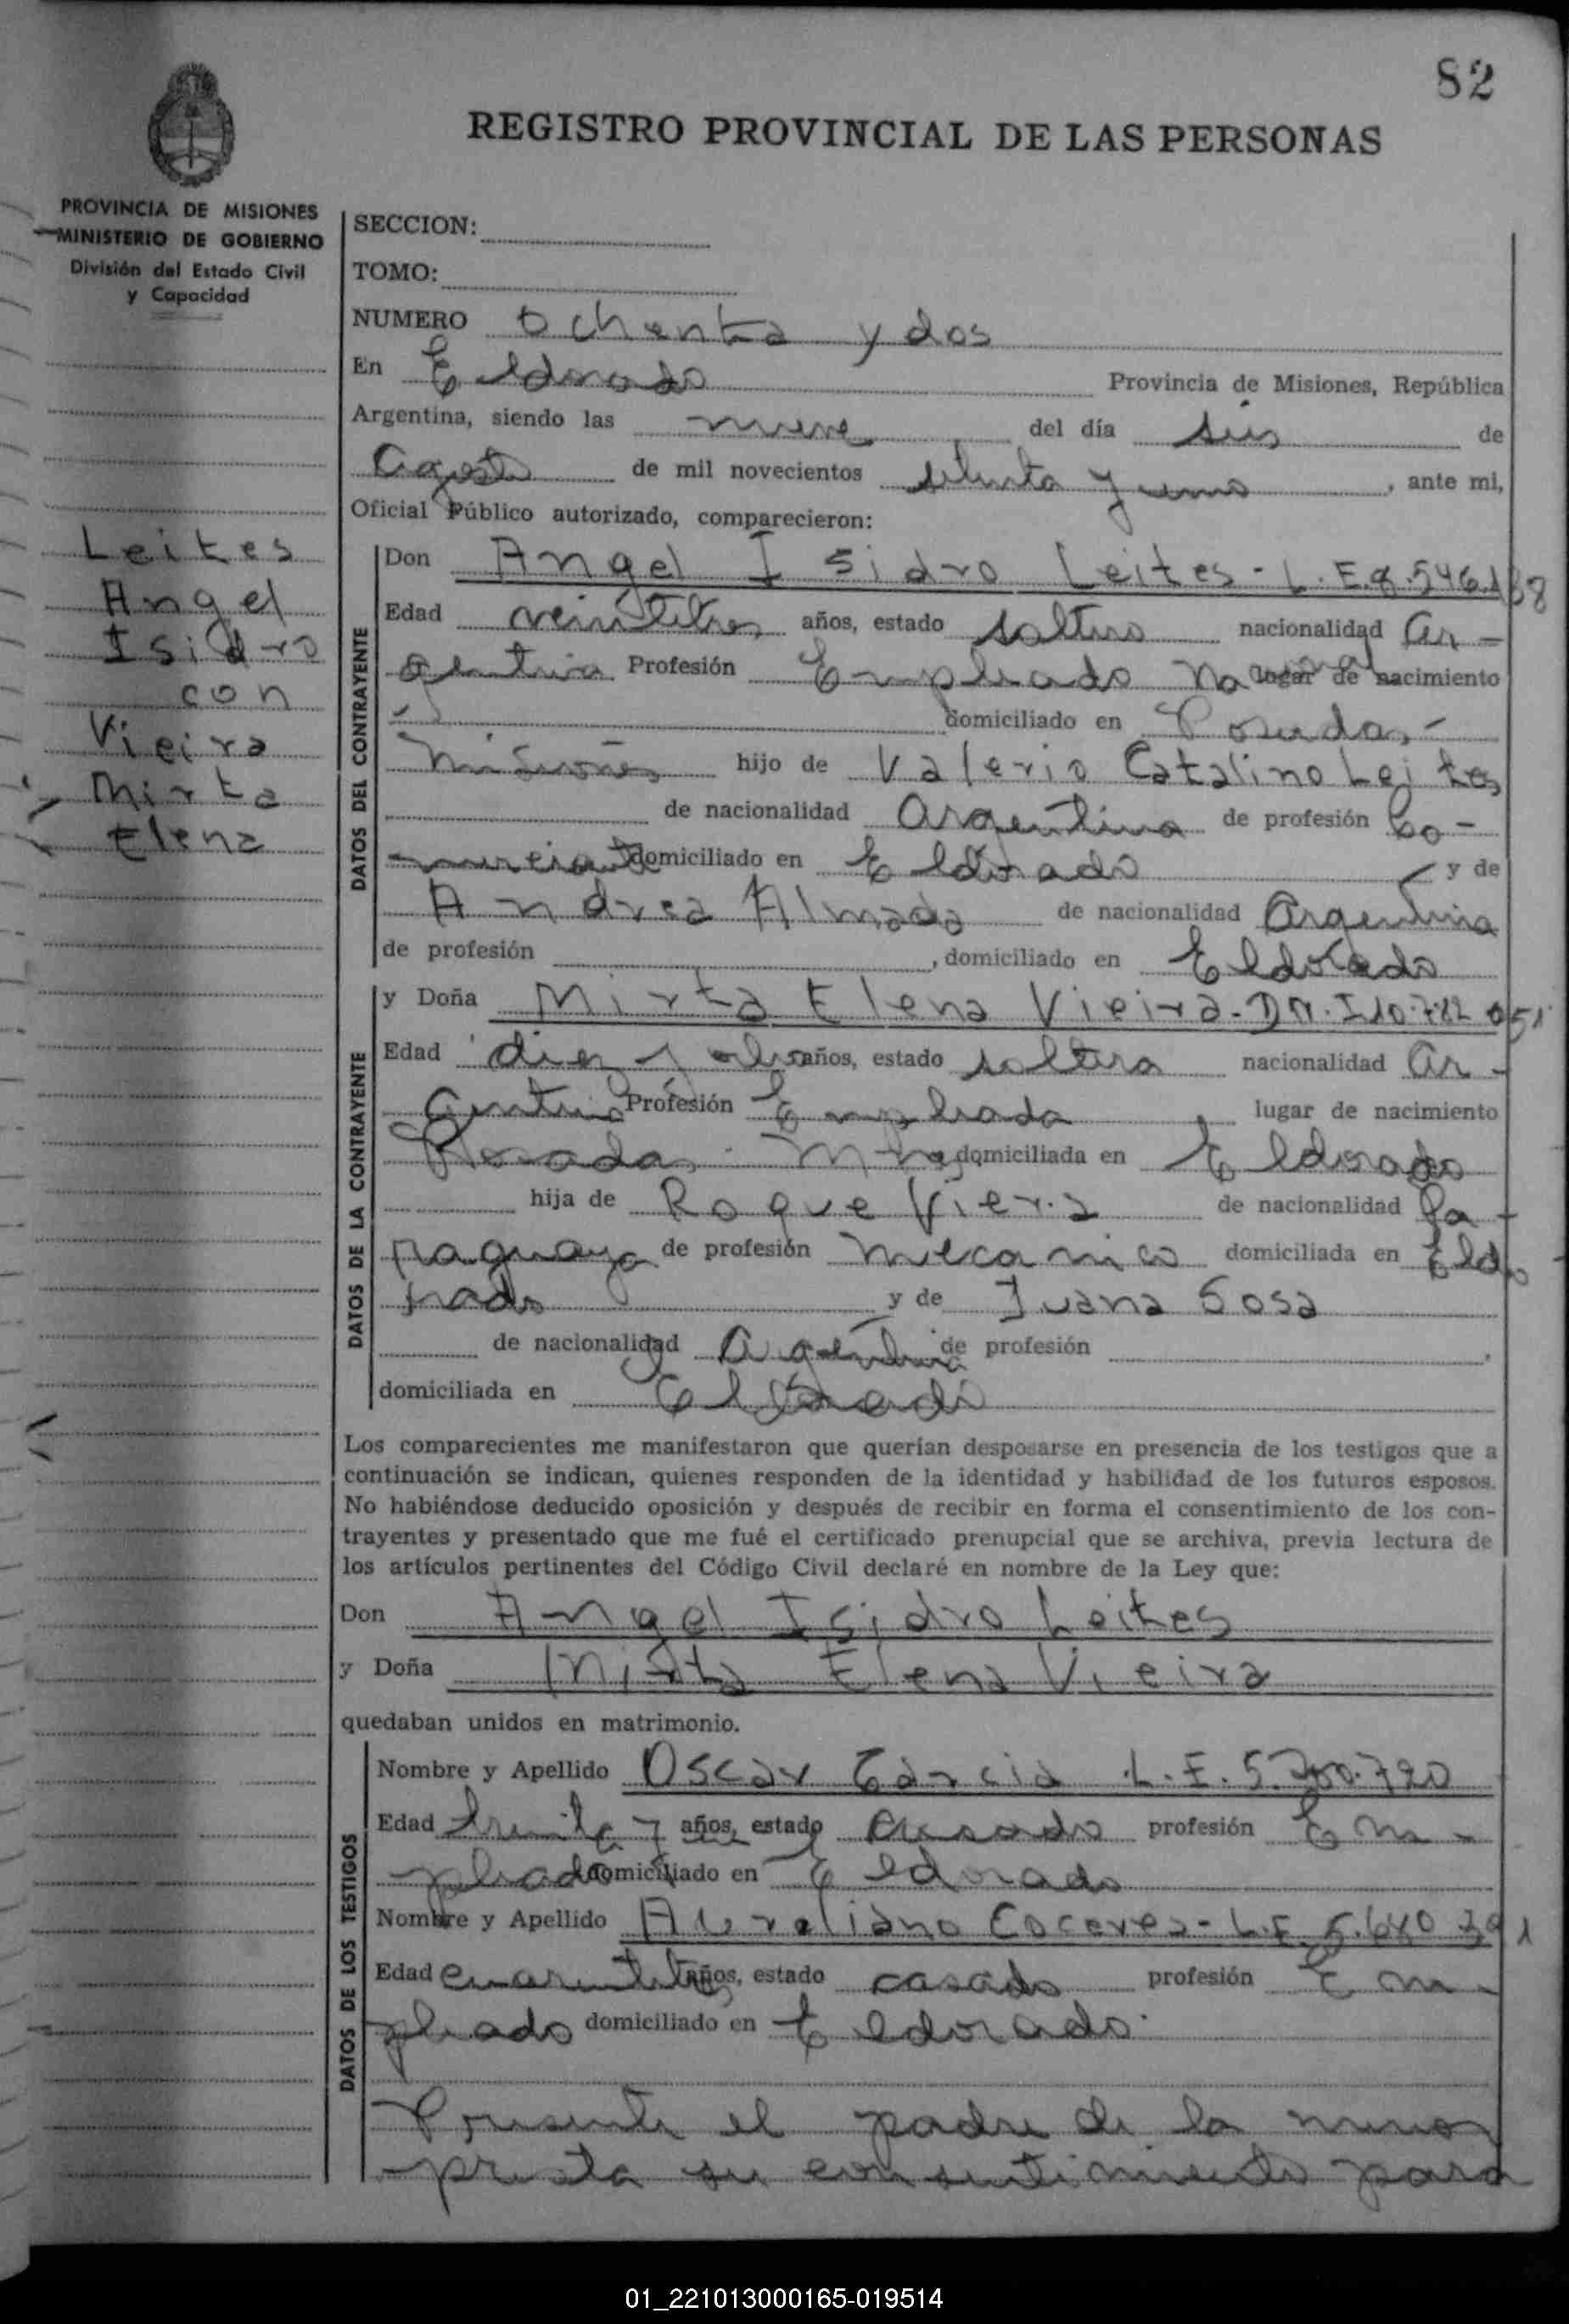 82
REGISTRO PROVINCIAL DE LAS PERSONAS
PROVINCIA DE MISIONES
MINISTERIO DE GOBIERNO
División del Estado Civil
y Capacidad
Leites
Angel
Isidro
con
Vieira
Mirta
Elena
SECCION:
TOMO:
NUMERO Ochenta y dos
En Eldorado Provincia de Misiones, República
Argentina, siendo las nueve del día seis de
Agosto de mil novecientos setenta y uno, ante mi,
Oficial Público autorizado, comparecieron:
DATOS DEL CONTRAYENTE
Don Angel Isidro Leites - L.E. 8.546.168
Edad veintitres años, estado soltero nacionalidad Ar-
gentina Profesión Empleado lugar de nacimiento
domiciliado en Posadas -
Misiones hijo de Valerio Catalino Leites
de nacionalidad Argentina de profesión Co-
merciante domiciliado en Eldorado y de
Andrea Almada de nacionalidad Argentina
de profesión , domiciliado en Eldorado
DATOS DE LA CONTRAYENTE
y Doña Mirta Elena Vieira - D.N.I 10.782 051
Edad diez y ocho años, estado soltera nacionalidad Ar-
gentina Profesión Empleada , lugar de nacimiento
Posadas - Mnes domiciliada en Eldorado
hija de Roque Viera de nacionalidad Pa-
raguaya de profesión mecanico domiciliada en Eldo
rado y de Juana Sosa
de nacionalidad Argentina de profesión ,
domiciliada en Eldorado
Los comparecientes me manifestaron que querían desposarse en presencia de los testigos que a
continuación se indican, quienes responden de la identidad y habilidad de los futuros esposos.
No habiéndose deducido oposición y después de recibir en forma el consentimiento de los con-
trayentes y presentado que me fué el certificado prenupcial que se archiva, previa lectura de
los artículos pertinentes del Código Civil declaré en nombre de la Ley que:
Don Angel Isidro Leites
y Doña Mirta Elena Vieira
quedaban unidos en matrimonio.
DATOS DE LOS TESTIGOS
Nombre y Apellido Oscar Garcia L.E. 5.700.720
Edad treinta y años, estado Casado profesión Em-
pleado domiciliado en Eldorado
Nombre y Apellido Aureliano Coceres - L.E. 5.680 391
Edad cuarentitres años, estado casado profesión Em-
pleado domiciliado en Eldorado.
Presente el padre de la menor
presta su consentimiento para
01_221013000165-019514